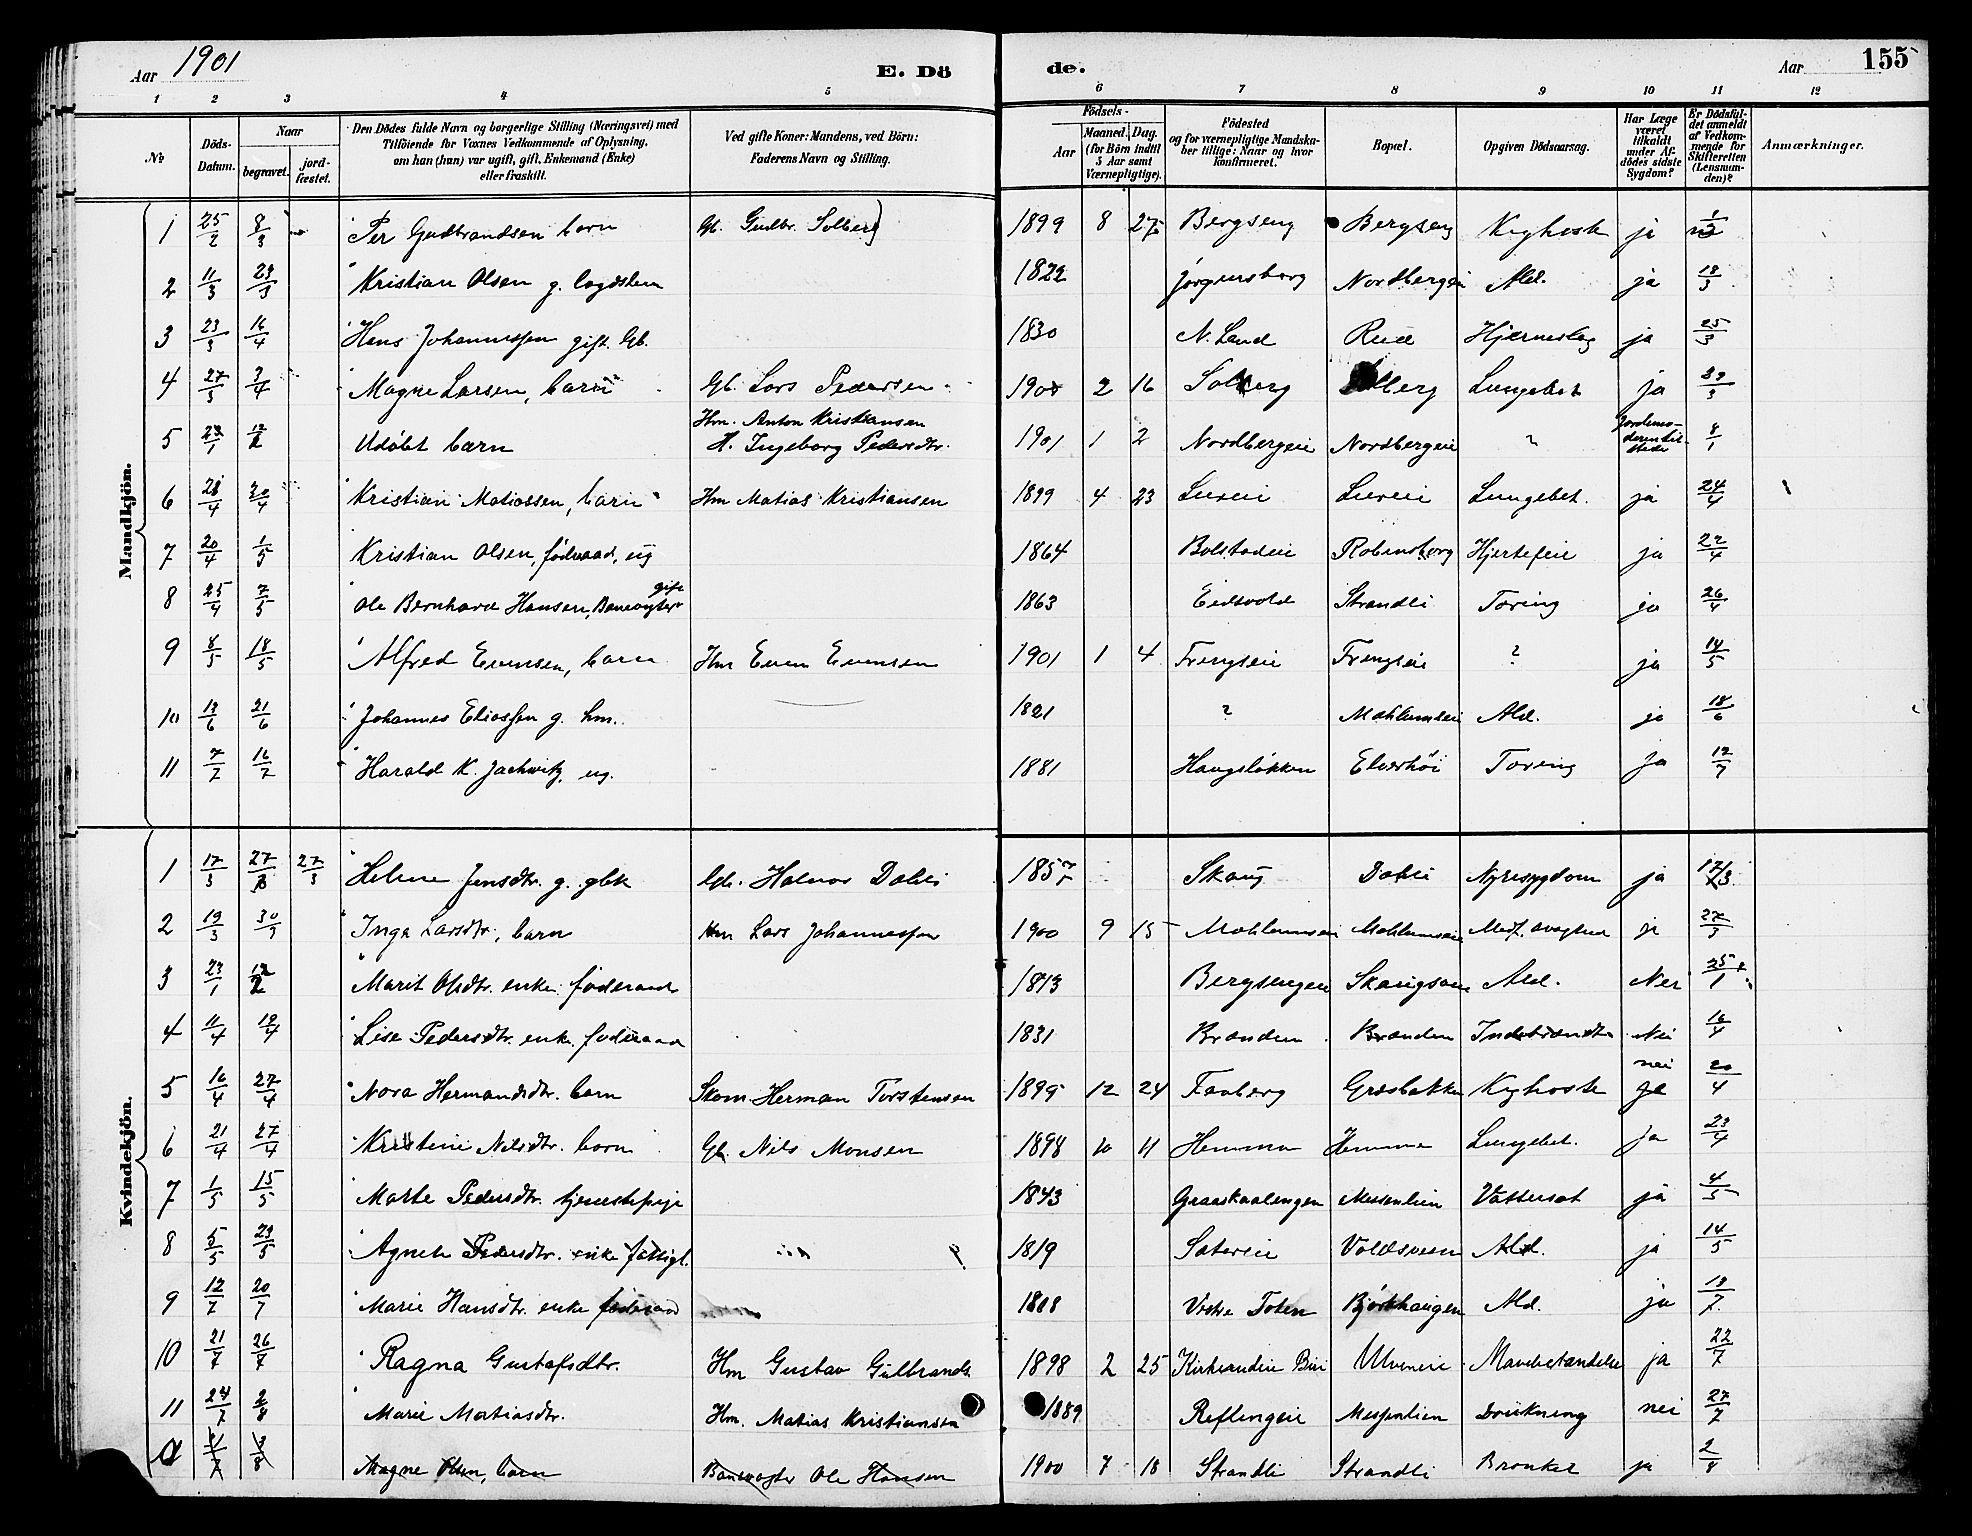 Aar 1901 E. Döde. Aar 155
1 2 3 4 5 6 7 8 9 10 11 12
№ Döds-Datum. Naar begravet. jordfæstet. Den Dödes fulde Navn og borgerlige Stilling (Næringsvei) med Tilföiende for Voxnes Vedkommende af Oplysning, om han (hun) var ugift, gift, Enkemand (Enke) eller fraskilt. Ved gifte Koner: Mandens, ved Börn: Faderens Navn og Stilling. Födsels- Aar Maaned. Dag. (for Börn indtil 5 Aar samt Værnepligtige). Födested og for værnepligtige Mandskaber tillige: Naar og hvor konfirmeret. Bopæl. Opgiven Dödsaarsag. Har Læge været tilkaldt under Afdödes sidste Sygdom? Er Dödsfaldet anmeldt af Vedkommende for Skifteretten (Lensmanden)? Anmærkninger.
Mandkjön.
1 25/2 8/3 Per Gudbrandsen barn Gb. Gudbr. Solberg 1899 8 27 Bergseng Bergseng Kighoste ja
2 11/3 23/3 Kristian Olsen g. 1822 Jørgensborg Nordbergeie Ald. ja 13/3
3 23/3 16/4 Hans Johannessen gift. Gb. 1830 N. Land Rud Hjerneslag ja 25/3
4 27/3 3/4 Magne Larsen, barn Gb. Lars Pedersen 1900 2 16 Solberg Solberg Lungebet. ja
5 Udøbt barn Hm. Anton Kristiansen H. Ingeborg Pedersdtr. 1901 1 2 Nordbergeie Nordbergeie ? 8/1
6 Kristian Matiassen, barn Hm Matias Kristiansen 1899 4 23 Lungebet. ja 24/4
7 20/4 1/5 Kristian Olsen, føderaad, ug 1864 Bolstadeie Robensborg Hjertefeil ja 22/4
8 25/4 7/5 Ole Bernhard Hansen, Banevogter gift 1863 Eidsvold Strandli Tæring ja 26/4
9 8/5 18/5 Alfred Evensen, barn Hm Even Evensen 1901 1 4 ? ja 14/5
10 21/6 Johannes Eliassen g. hm. 1821 ? Mæhlumseie Ald. ja 18/6
11 7/7 16/7 Harald K. Jachwitz, ug. 1881 Haugsløkken Elverhøi Tæring ja 12/7
Kvindekjön.
1 17/3 27/3 27/3 Helene Jensdtr. g. gbk Gb. Halvor Dahli 1857 Skaug Dahli Nyresygdom ja
2 19/3 30/3 Inga Larsdtr., barn Hm Lars Johannessen 1900 9 15 Mæhlumseie Mæhlumseie ja 27/3
3 23/1 Marit Olsdtr. enke føderaad 1813 Bergsengen Ald. Nei 25/1
4 11/4 19/4 Lise Pedersdtr. enke føderaad 1831 Brænden Brænden Nei 16/4
5 16/4 27/4 Nora Hermandsdtr. barn Skom. Herman Torstensen 1899 12 24 Faaberg Græsbakken Kighoste nei 20/4
6 21/4 27/4 Kristine Nilsdtr. barn Gb. Nils Monsen 1898 10 11 Hemma Hemma Lungebet. ja 23/4
7 1/5 15/5 Marte Pedersdtr. tjenestepige 1843 Graaskaalengen Messenlien Vattersot ja 4/5
8 5/5 23/5 Agnete Pedersdtr. enke fattigl. 1819 Ald. ja 14/5
9 12/7 20/7 Marie Hansdtr. enke føderaad 1808 Vestre Toten Bjørkhaugen Ald. ja
10 21/7 26/7 Ragna Gustafsdtr. Hm Gustav Gulbrands. 1898 2 25 Kirkerudeie Biri Ulveneie Mavebetændelse ja 22/7
11 24/7 2/8 Marie Matiasdtr. Hm. Matias Kristiansen 1889 Reflingeie Messenlien Drukning nei 27/7
Magne Olsen, barn Banevogter Ole Hansen 1900 7 18 Strandli Strandli Bronket ja 2/8